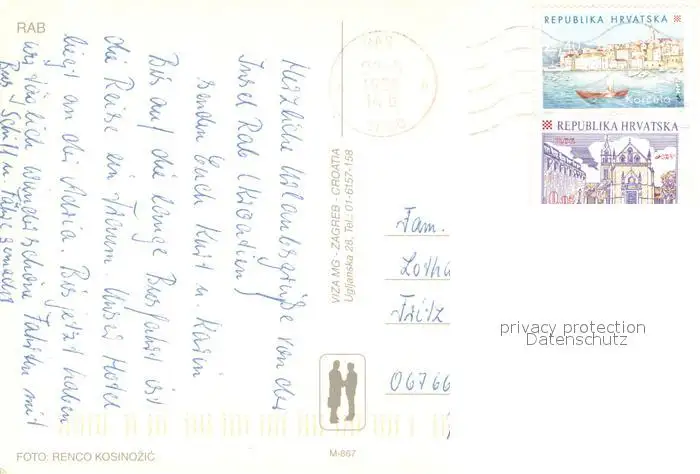 RAB
Herzliche Urlaubsgrüße von der
Insel Rab (Kroatien)
senden Euch Kurt u. Karin
Bis auf die lange Busfahrt ist
die Reise ein Traum. Unser Hotel
liegt an der Adria. Bis jetzt haben
wir täglich wunderschöne Fahrten mit
Bus, Schiff u. Fähre gemacht
FOTO: RENCO KOSINOŽIĆ
VIZA MG - ZAGREB - CROATIA
Upljanska 28, Tel.: 01-6157-158
M-867
REPUBLIKA HRVATSKA
2,40
Korčula
REPUBLIKA HRVATSKA
Fam.
Lotha
Fritz
06766
privacy protection
Datenschutz